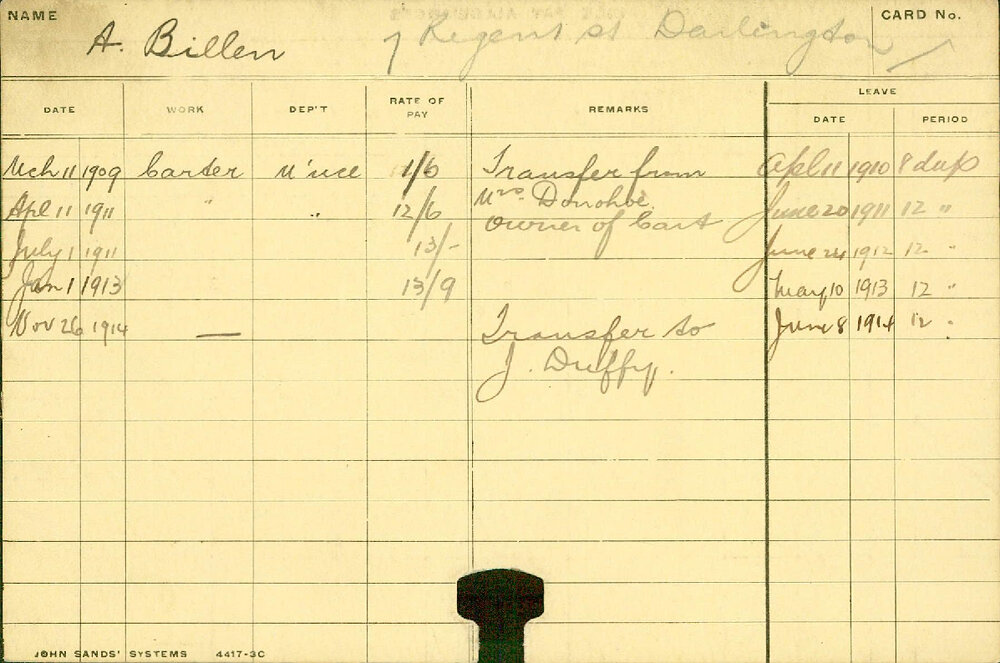 NAME A. Billen 7 Regent st Darlington CARD No.
DATE WORK DEP'T RATE OF PAY REMARKS LEAVE
DATE PERIOD
Mch 11 1909 Carter M'nce 1/6 Transfer from Apl 11 1910 8 days
Apl 11 1911 " " 12/6 Mrs. Donohoe June 20 1911 12 "
owner of Cart
July 1 1911 13/- June 24 1912 12 "
Jan 1 1913 13/9 May 10 1913 12 "
Nov 26 1914 — Transfer to June 8 1914 12 "
J. Duffy.
JOHN SANDS' SYSTEMS 4417-3C